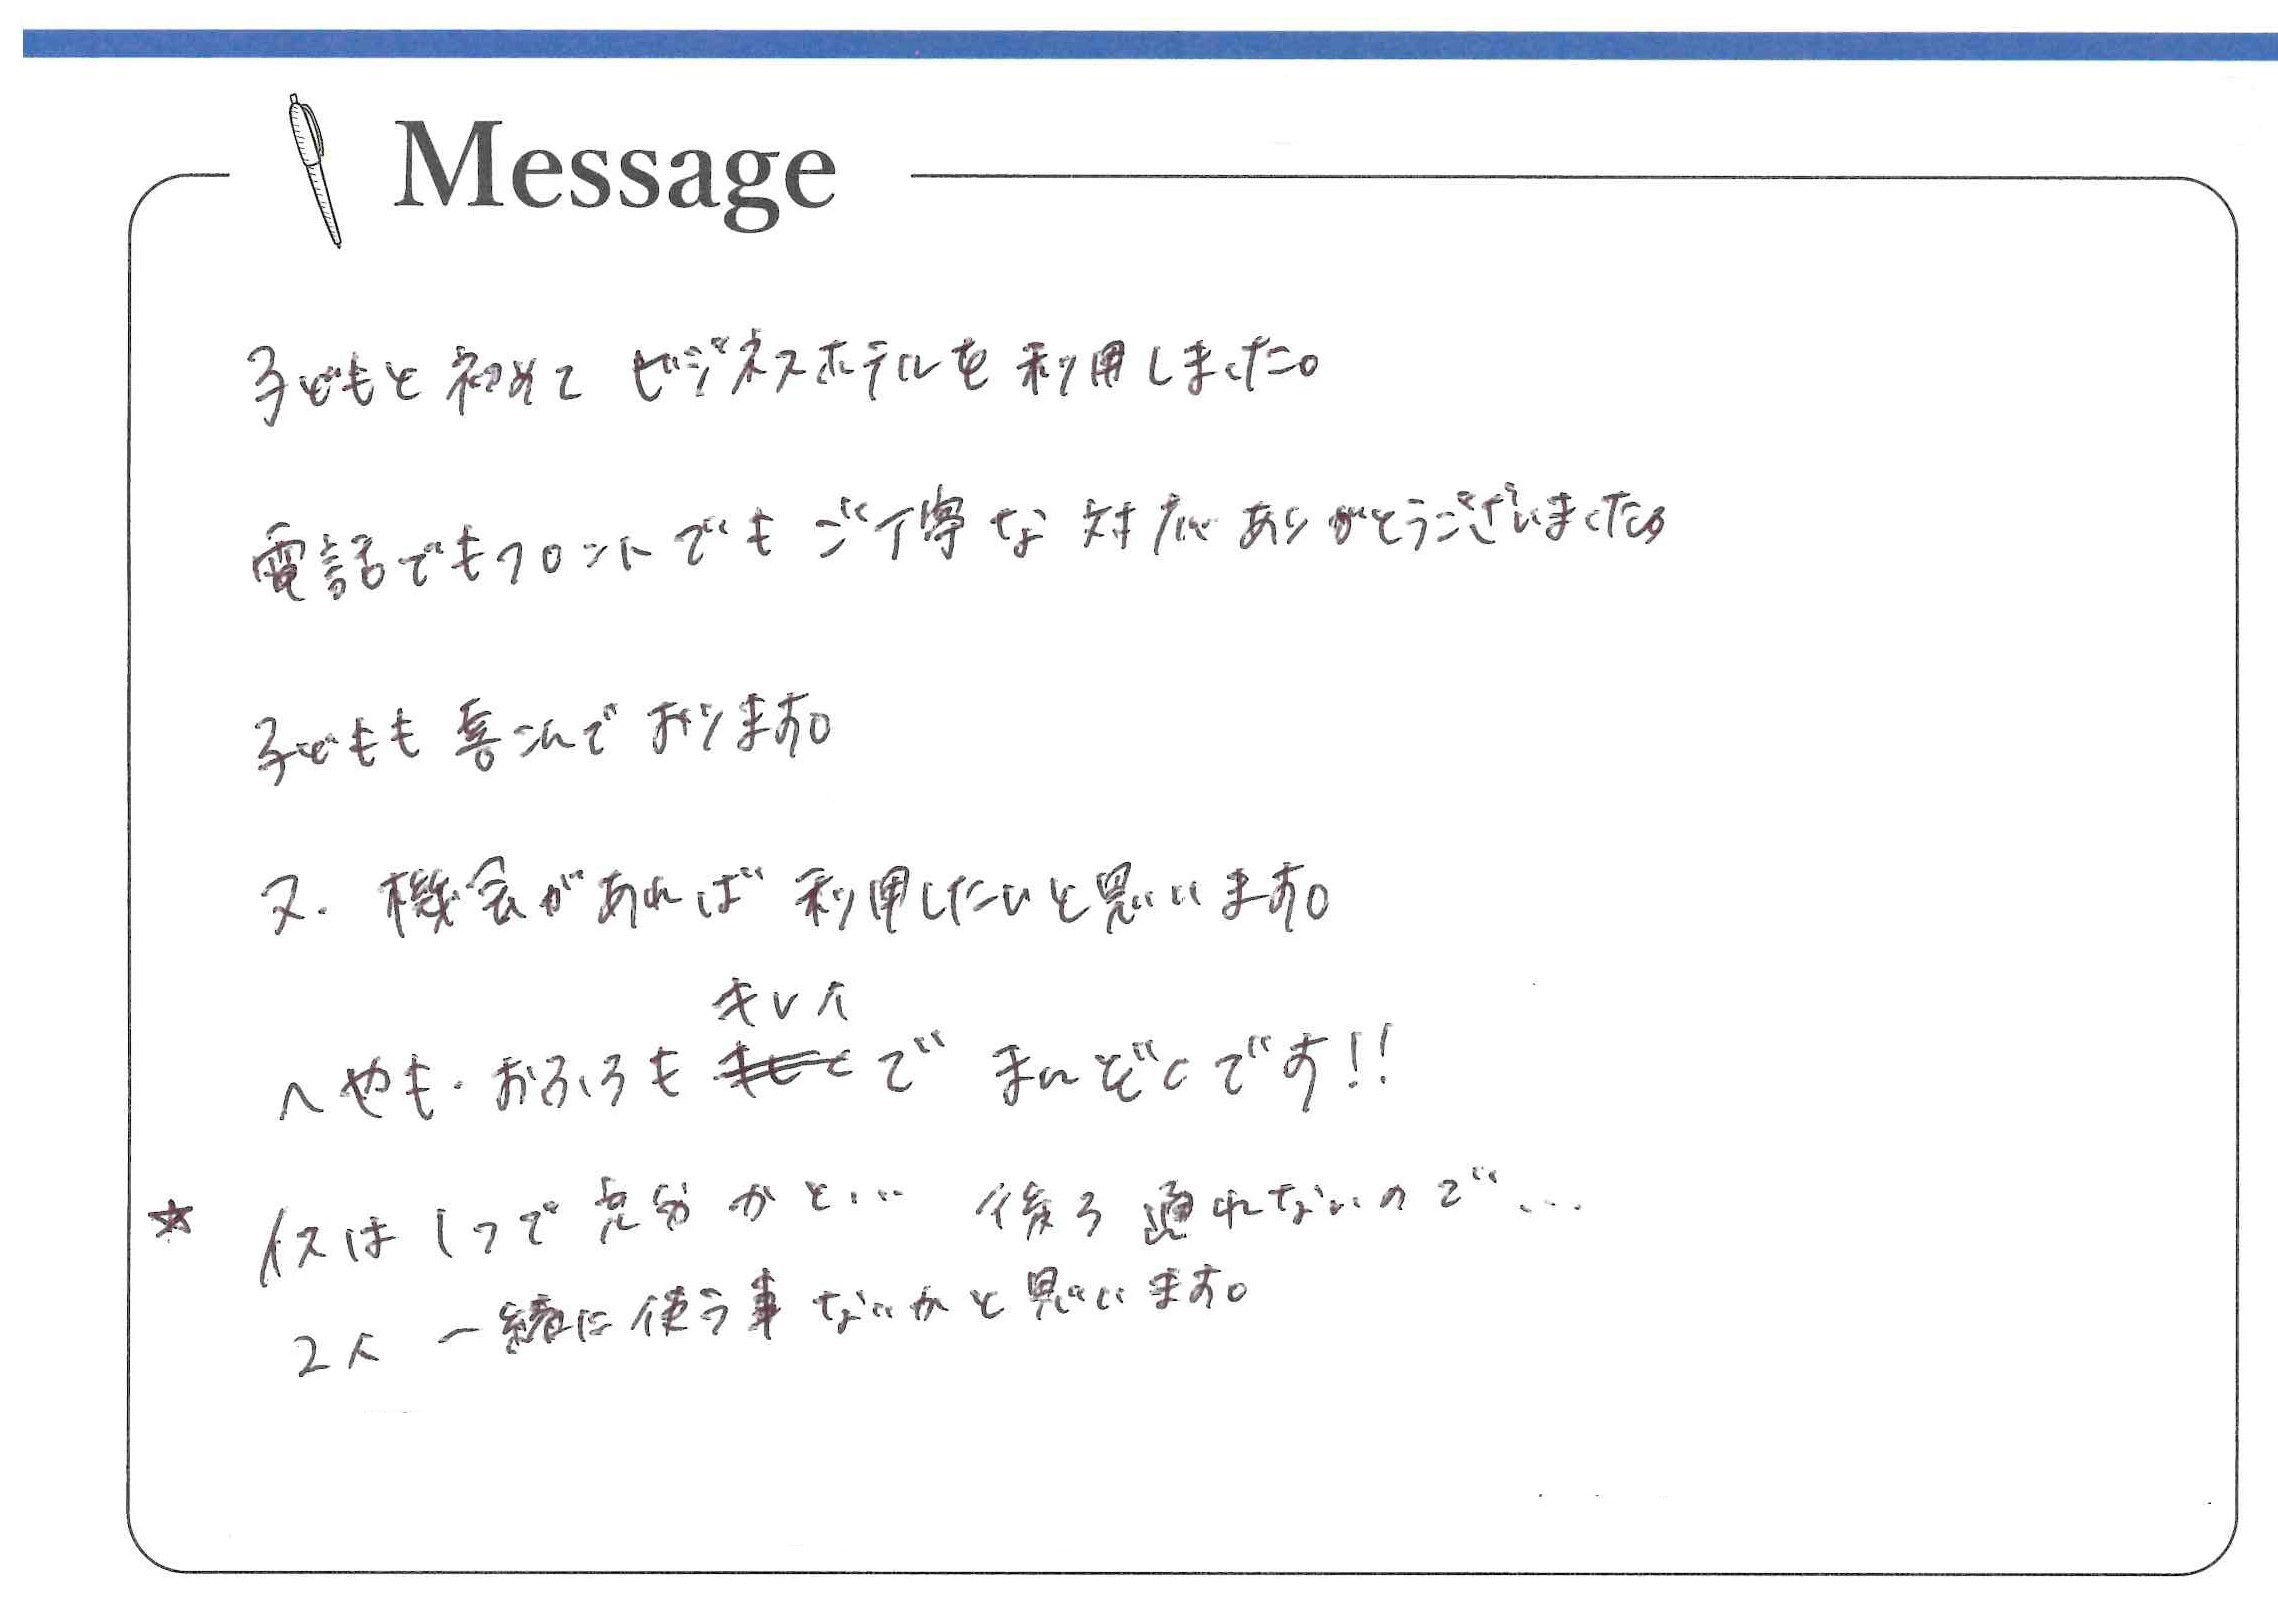 Message
子どもと初めて ビジネスホテルを利用しました。
電話でもフロントでもご丁寧な対応ありがとうございました。
子どもも喜こんでおります。
又、機会があれば利用したいと思います。
キレイ
へやも、おふろもでまんぞくです!!
☆ イスは1つで充分かと… 後ろ通れないので…
2人 一緒に使う事ないかと思います。